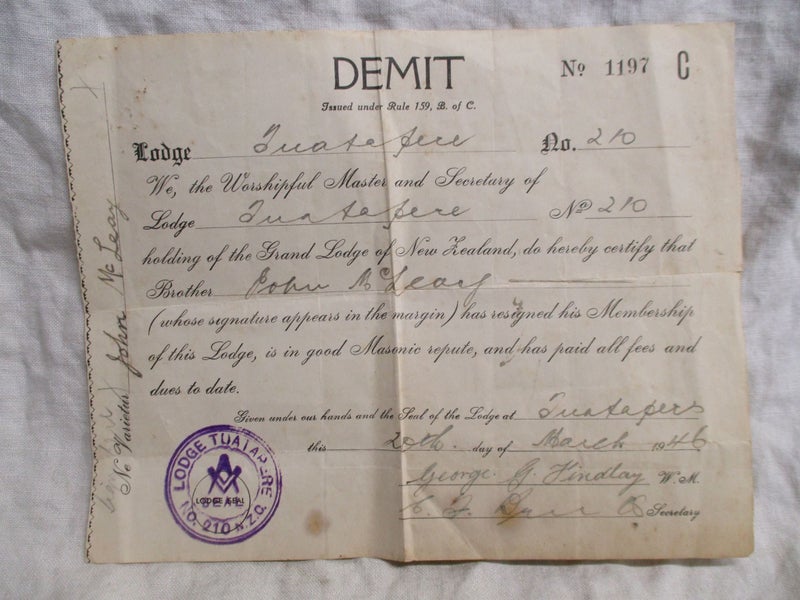 DEMIT
No 1197 C
Issued under Rule 159, B. of C.
Lodge Tuatapere No. 210
We, the Worshipful Master and Secretary of
Lodge Tuatapere No 210
holding of the Grand Lodge of New Zealand, do hereby certify that
Brother John McLeay
(whose signature appears in the margin) has resigned his Membership
of this Lodge, is in good Masonic repute, and has paid all fees and
dues to date.
Given under our hands and the Seal of the Lodge at Tuatapere
this 20th day of March 1946
George. G. Findlay W. M.
Secretary
Ne Varietur John McLeay
LODGE TUATAPERE
LODGE SEAL
SEAL
NO. 210 N.Z.C.